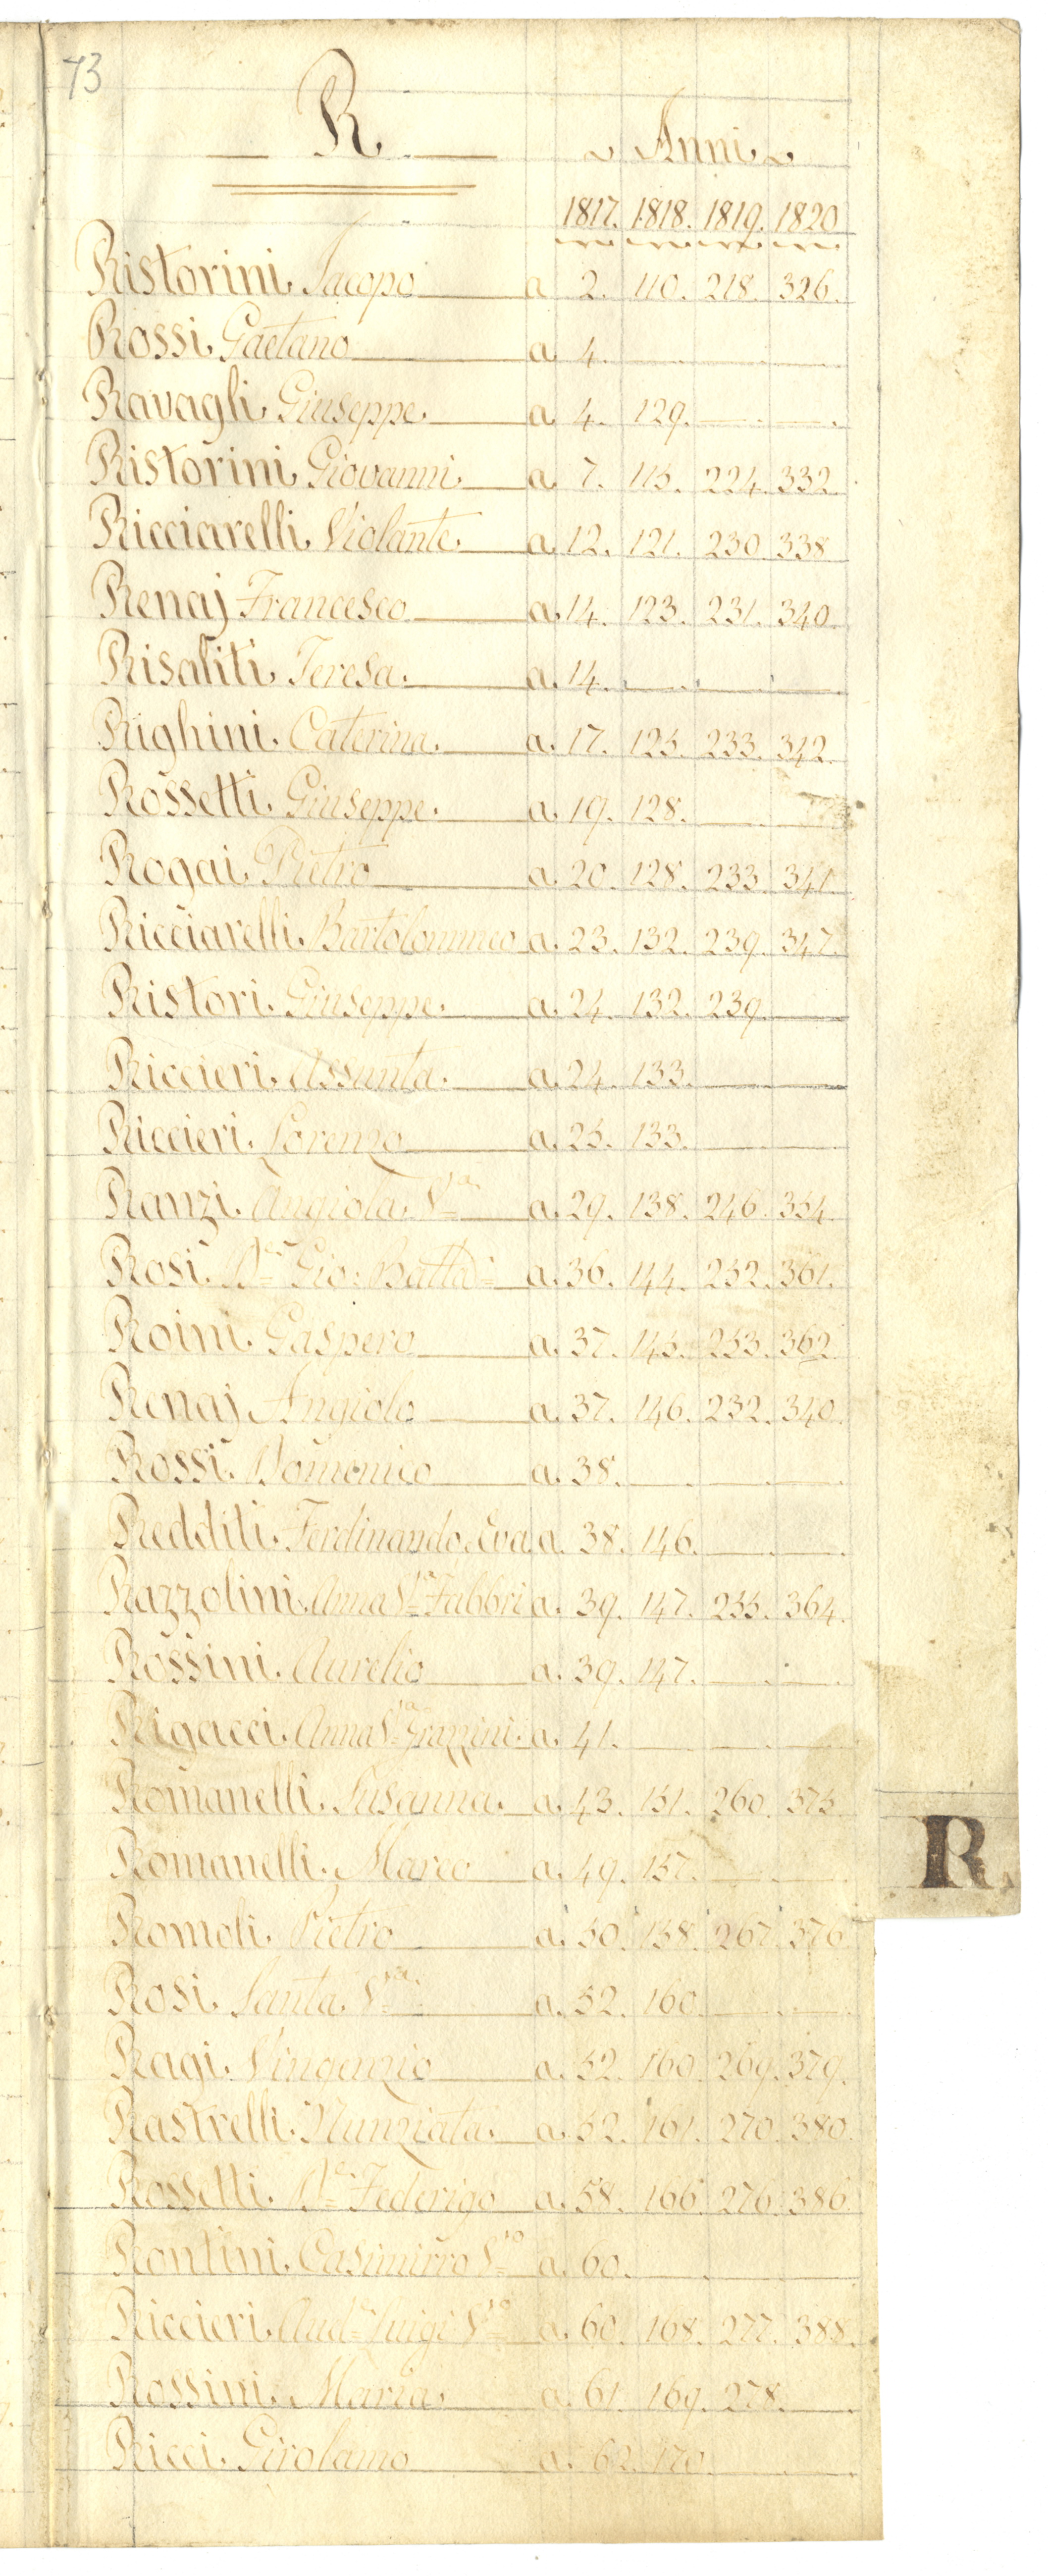 73
R.
Anni
1817. 1818. 1819. 1820
Ristorini. Jacopo a 2. 110. 218. 326.
Rossi. Gaetano a. 4.
Ravagli. Giuseppe. a. 4. 129.
Ristorini. Giovanni. a. 7. 115. 224. 332.
Ricciarelli. Violante. a. 12. 121. 230. 338
Renaj Francesco a. 14. 123. 231. 340.
Risaliti. Teresa. a. 14.
Righini. Caterina. a. 17. 125. 233. 342.
Rossetti. Giuseppe. a. 19. 128.
Rogai. Pietro a. 20. 128. 233. 341.
Ricciarelli. Bartolommeo a. 23. 132. 239. 347.
Ristori. Giuseppe. a. 24. 132. 239.
Riccieri. Assunta. a. 24. 133.
Riccieri. Lorenzo a. 25. 133.
Ranzi. Angiola. Sra a. 29. 138. 246. 354.
Rosi. Gio: Batta a. 36. 144. 252. 361.
Roini. Gaspero a. 37. 145. 253. 362.
Renaj Angiolo a. 37. 146. 232. 340.
Rossi. Domenico a. 38.
Redditi. Ferdinando. a. 38. 146.
Razzolini. Anna Fabbri a. 39. 147. 255. 364.
Rossini. Aurelio a. 39. 147.
Rigacci. Anna Grazzini. a. 41.
Romanelli. Susanna. a. 43. 151. 260. 373.
Romanelli. Marco a. 49. 157.
Romoli. Pietro a. 50. 158. 267. 376.
Rosi. Santa. Sra a. 52. 160.
Ragi. Vingenzio a. 52. 160. 269. 379.
Rastrelli. Nunziata. a. 52. 161. 270. 380.
Rossetti. Federigo a. 58. 166. 276. 386.
Rontini. Casimirro a. 60.
Riccieri. Luigi a. 60. 168. 277. 388.
Rossini. Maria. a. 61. 169. 278.
Ricci. Girolamo a. 62. 170.
R.